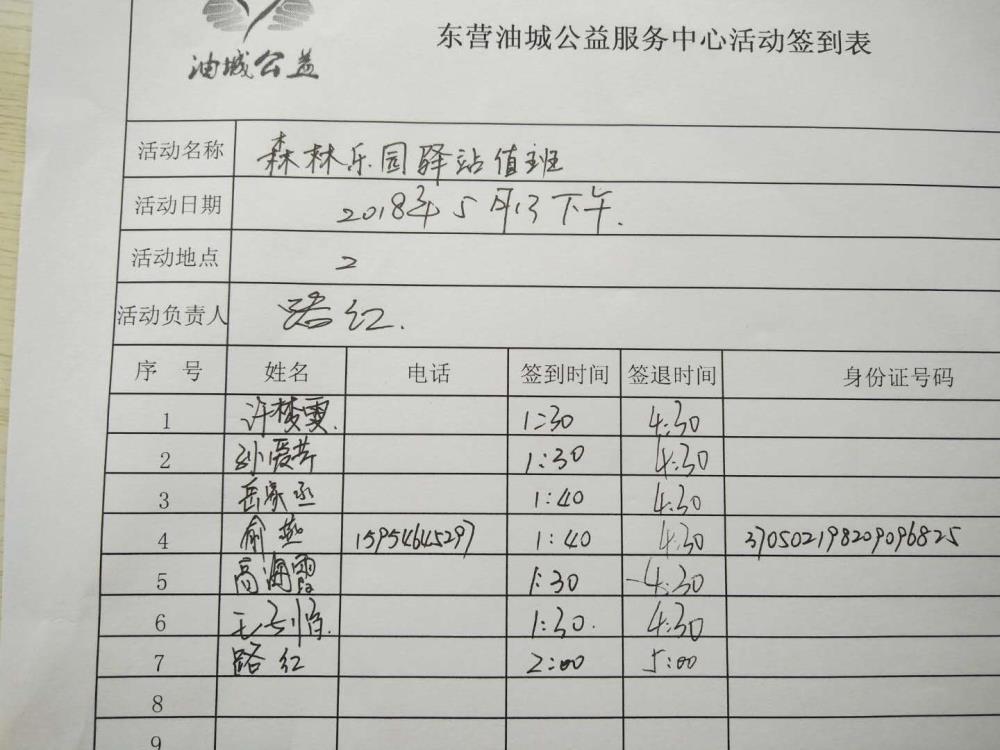 油城公益
东营油城公益服务中心活动签到表
活动名称 森林乐园驿站值班
活动日期 2018年5月13下午.
活动地点 2
活动负责人 路红.
序 号 姓名 电话 签到时间 签退时间 身份证号码
1 许梦雯. 1:30 4:30
2 孙爱芹 1:30 4:30
3 岳家丞 1:40 4:30
4 俞燕 15954645297 1:40 4:30 370502198209096825
5 高海霞 1:30 4:30
6 1:30. 4:30
7 路红 2:00 5:00
8
9